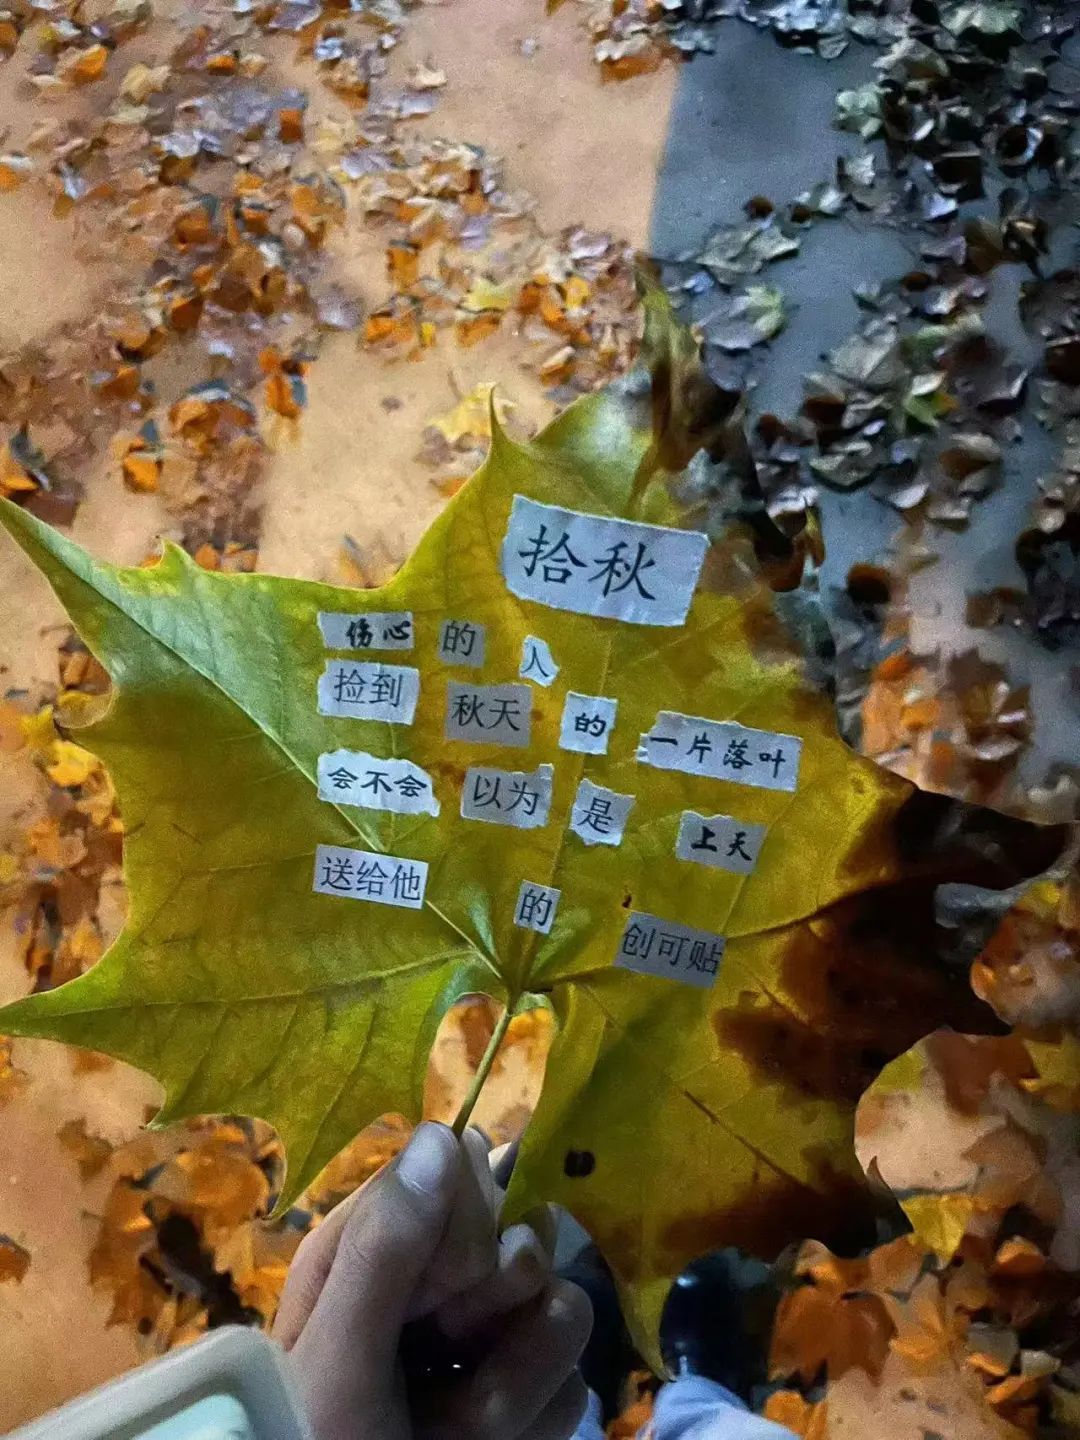 拾秋
伤心 的 人
捡到 秋天 的 一片落叶
会不会 以为 是 上天
送给他 的 创可贴